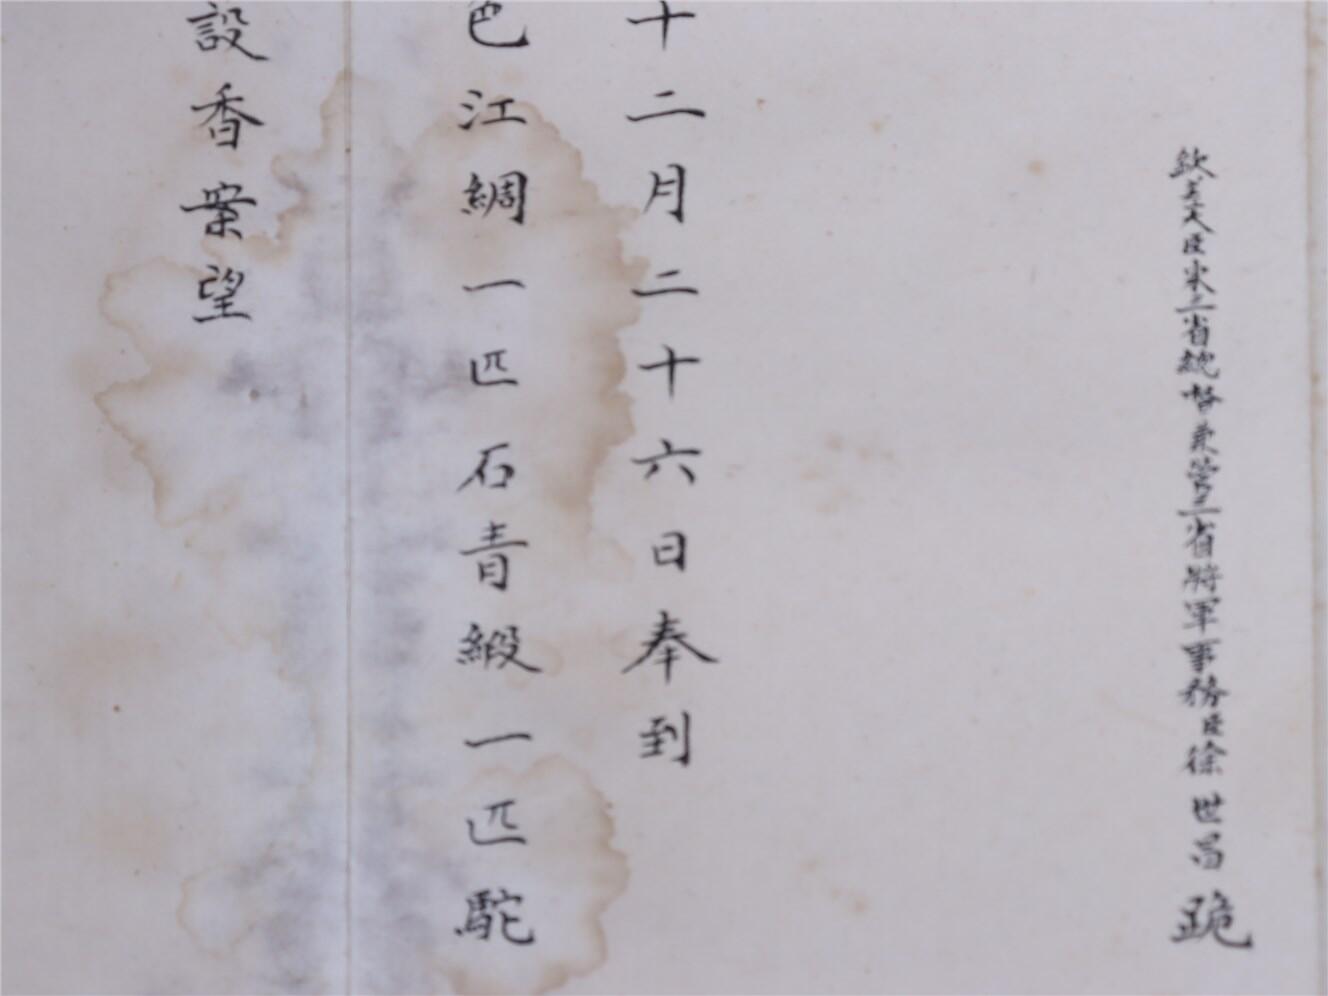 欽差大臣東三省總督兼管三省將軍事務臣徐世昌跪
十二月二十六日奉到
色江綢一匹石青緞一匹駝
設香案望